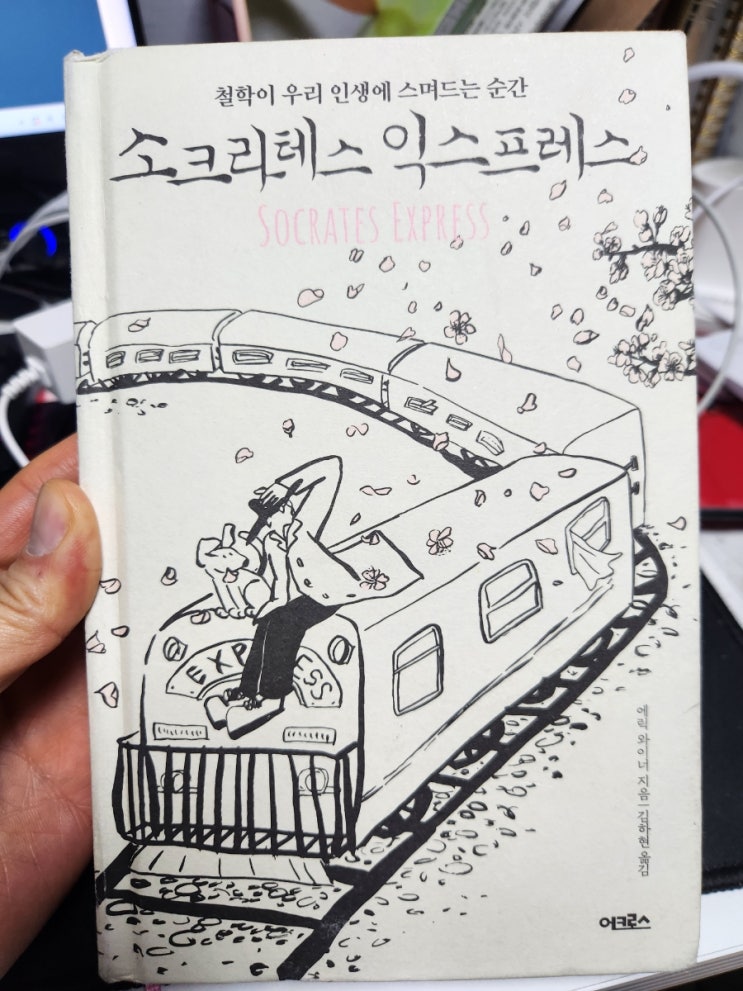 철학이 우리 인생에 스며드는 순간
소크라테스 익스프레스
SOCRATES EXPRESS
EXPRESS
에릭 와이너 지음 | 김하현 옮김
어크로스